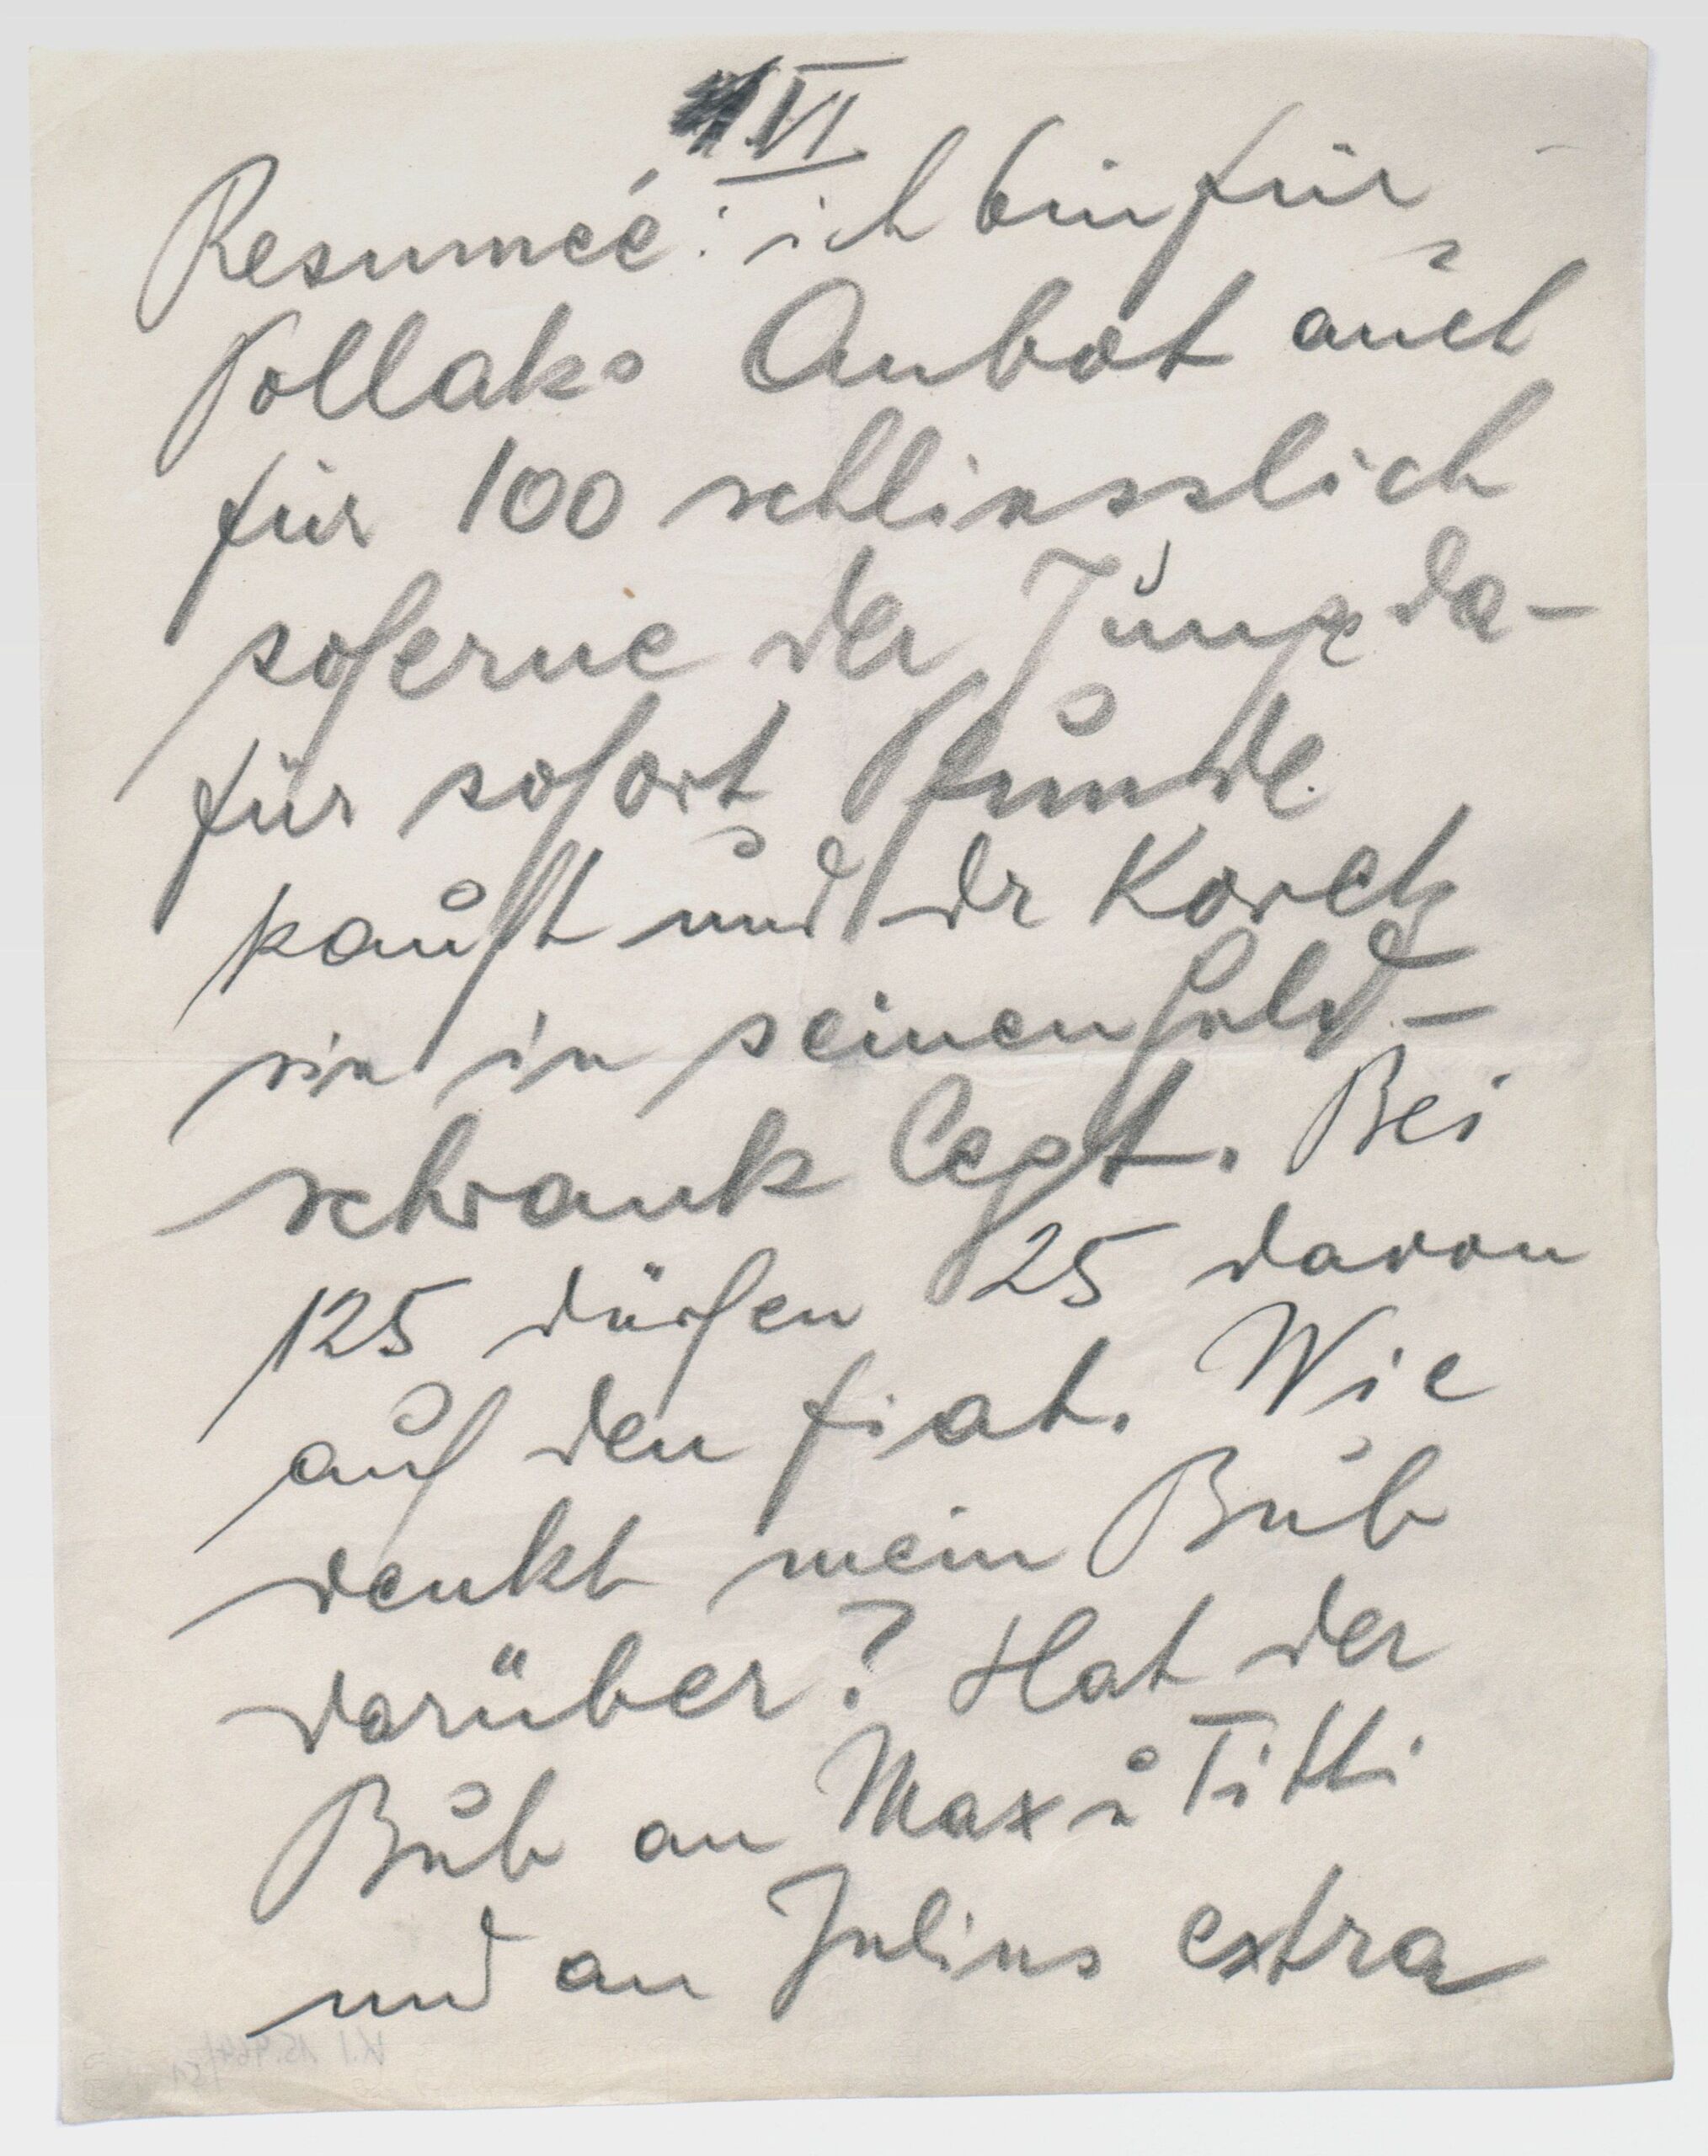 VI
Resumeé: ich bin für
Pollaks Anbot auch
für 100 schliesslich
soferne der Junge da-
für sofort Pfunde
kauft und Dr Koretz
sie in seinen Geld-
schrank legt. Bei
125 dürfen 25 davon
auf den Fiat. Wie
denkt mein Bub
darüber? Hat der
Bub an Max u Titti
und an Julius extra